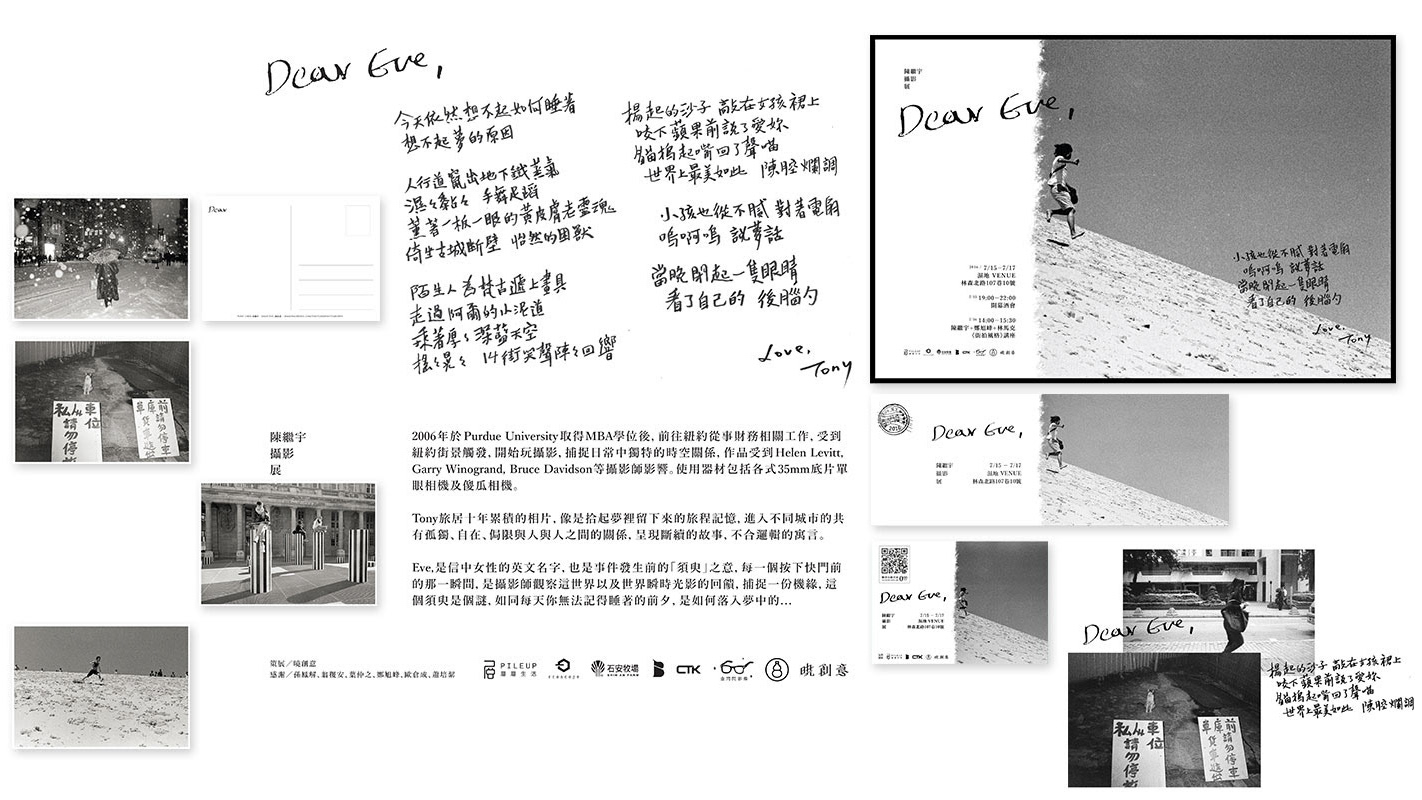 Dear Eve,
今天依然想不起如何睡著
想不起夢的原因
人行道竄出地下鐵蒸氣
濕々黏々 手舞足蹈
薰著一板一眼的黃皮膚老靈魂
倚坐古城斷壁 怡然的困獸
陌生人為梵古遞上畫具
走過阿爾的小泥道
乘著厚々深藍天空
搖々晃々 14街笑聲陣々回響
揚起的沙子 敲在女孩裙上
咬下蘋果前說了愛妳
貓搗起嘴回了聲喵
世界上最美如此 陳腔爛調
小孩也從不膩 對著電扇
嗚啊嗚 說夢話
當晚閉起一隻眼睛
看了自己的 後腦勺
Love,
Tony
陳繼宇
攝影
展
2006年於Purdue University取得MBA學位後, 前往紐約從事財務相關工作, 受到
紐約街景觸發, 開始玩攝影, 捕捉日常中獨特的時空關係, 作品受到Helen Levitt,
Garry Winogrand, Bruce Davidson等攝影師影響。使用器材包括各式35mm底片單
眼相機及傻瓜相機。
Tony旅居十年累積的相片, 像是拾起夢裡留下來的旅程記憶, 進入不同城市的共
有孤獨、自在、侷限與人與人之間的關係, 呈現斷續的故事, 不合邏輯的寓言。
Eve,是信中女性的英文名字, 也是事件發生前的「須臾」之意, 每一個按下快門前
的那一瞬間, 是攝影師觀察這世界以及世界瞬時光影的回饋, 捕捉一份機緣, 這
個須臾是個謎, 如同每天你無法記得睡著的前夕, 是如何落入夢中的...
策展／曉創意
感謝／孫鳳解、翁復安、葉仲之、鄭旭峰、歐倉成、蕭培絜
PILEUP
疊疊生活
石安牧場
CTK
曉創意
Dear
私人車位
請勿停
車庫前請勿停車
陳繼宇
攝影
展
Dear Eve,
2016 / 7/15－7/17
濕地 VENUE
林森北路107巷10號
7/15 19:00－22:00
開幕酒會
7/16 14:00－15:30
陳繼宇+鄭旭峰+林馬克
《街拍風格》講座
CTK
曉創意
小孩也從不膩 對著電扇
嗚啊嗚 說夢話
當晚閉起一隻眼睛
看了自己的 後腦勺
Love,
Tony
2016
Dear Eve,
陳繼宇
攝影
展
7/15－7/17
濕地 VENUE
林森北路107巷10號
Dear Eve,
陳繼宇
攝影
展
7/15－7/17
濕地 VENUE
林森北路107巷10號
CTK
曉創意
Dear Eve,
揚起的沙子 敲在女孩裙上
咬下蘋果前說了愛妳
貓搗起嘴回了聲喵
世界上最美如此 陳腔爛調
私人車位
請勿停
車庫前請勿停車